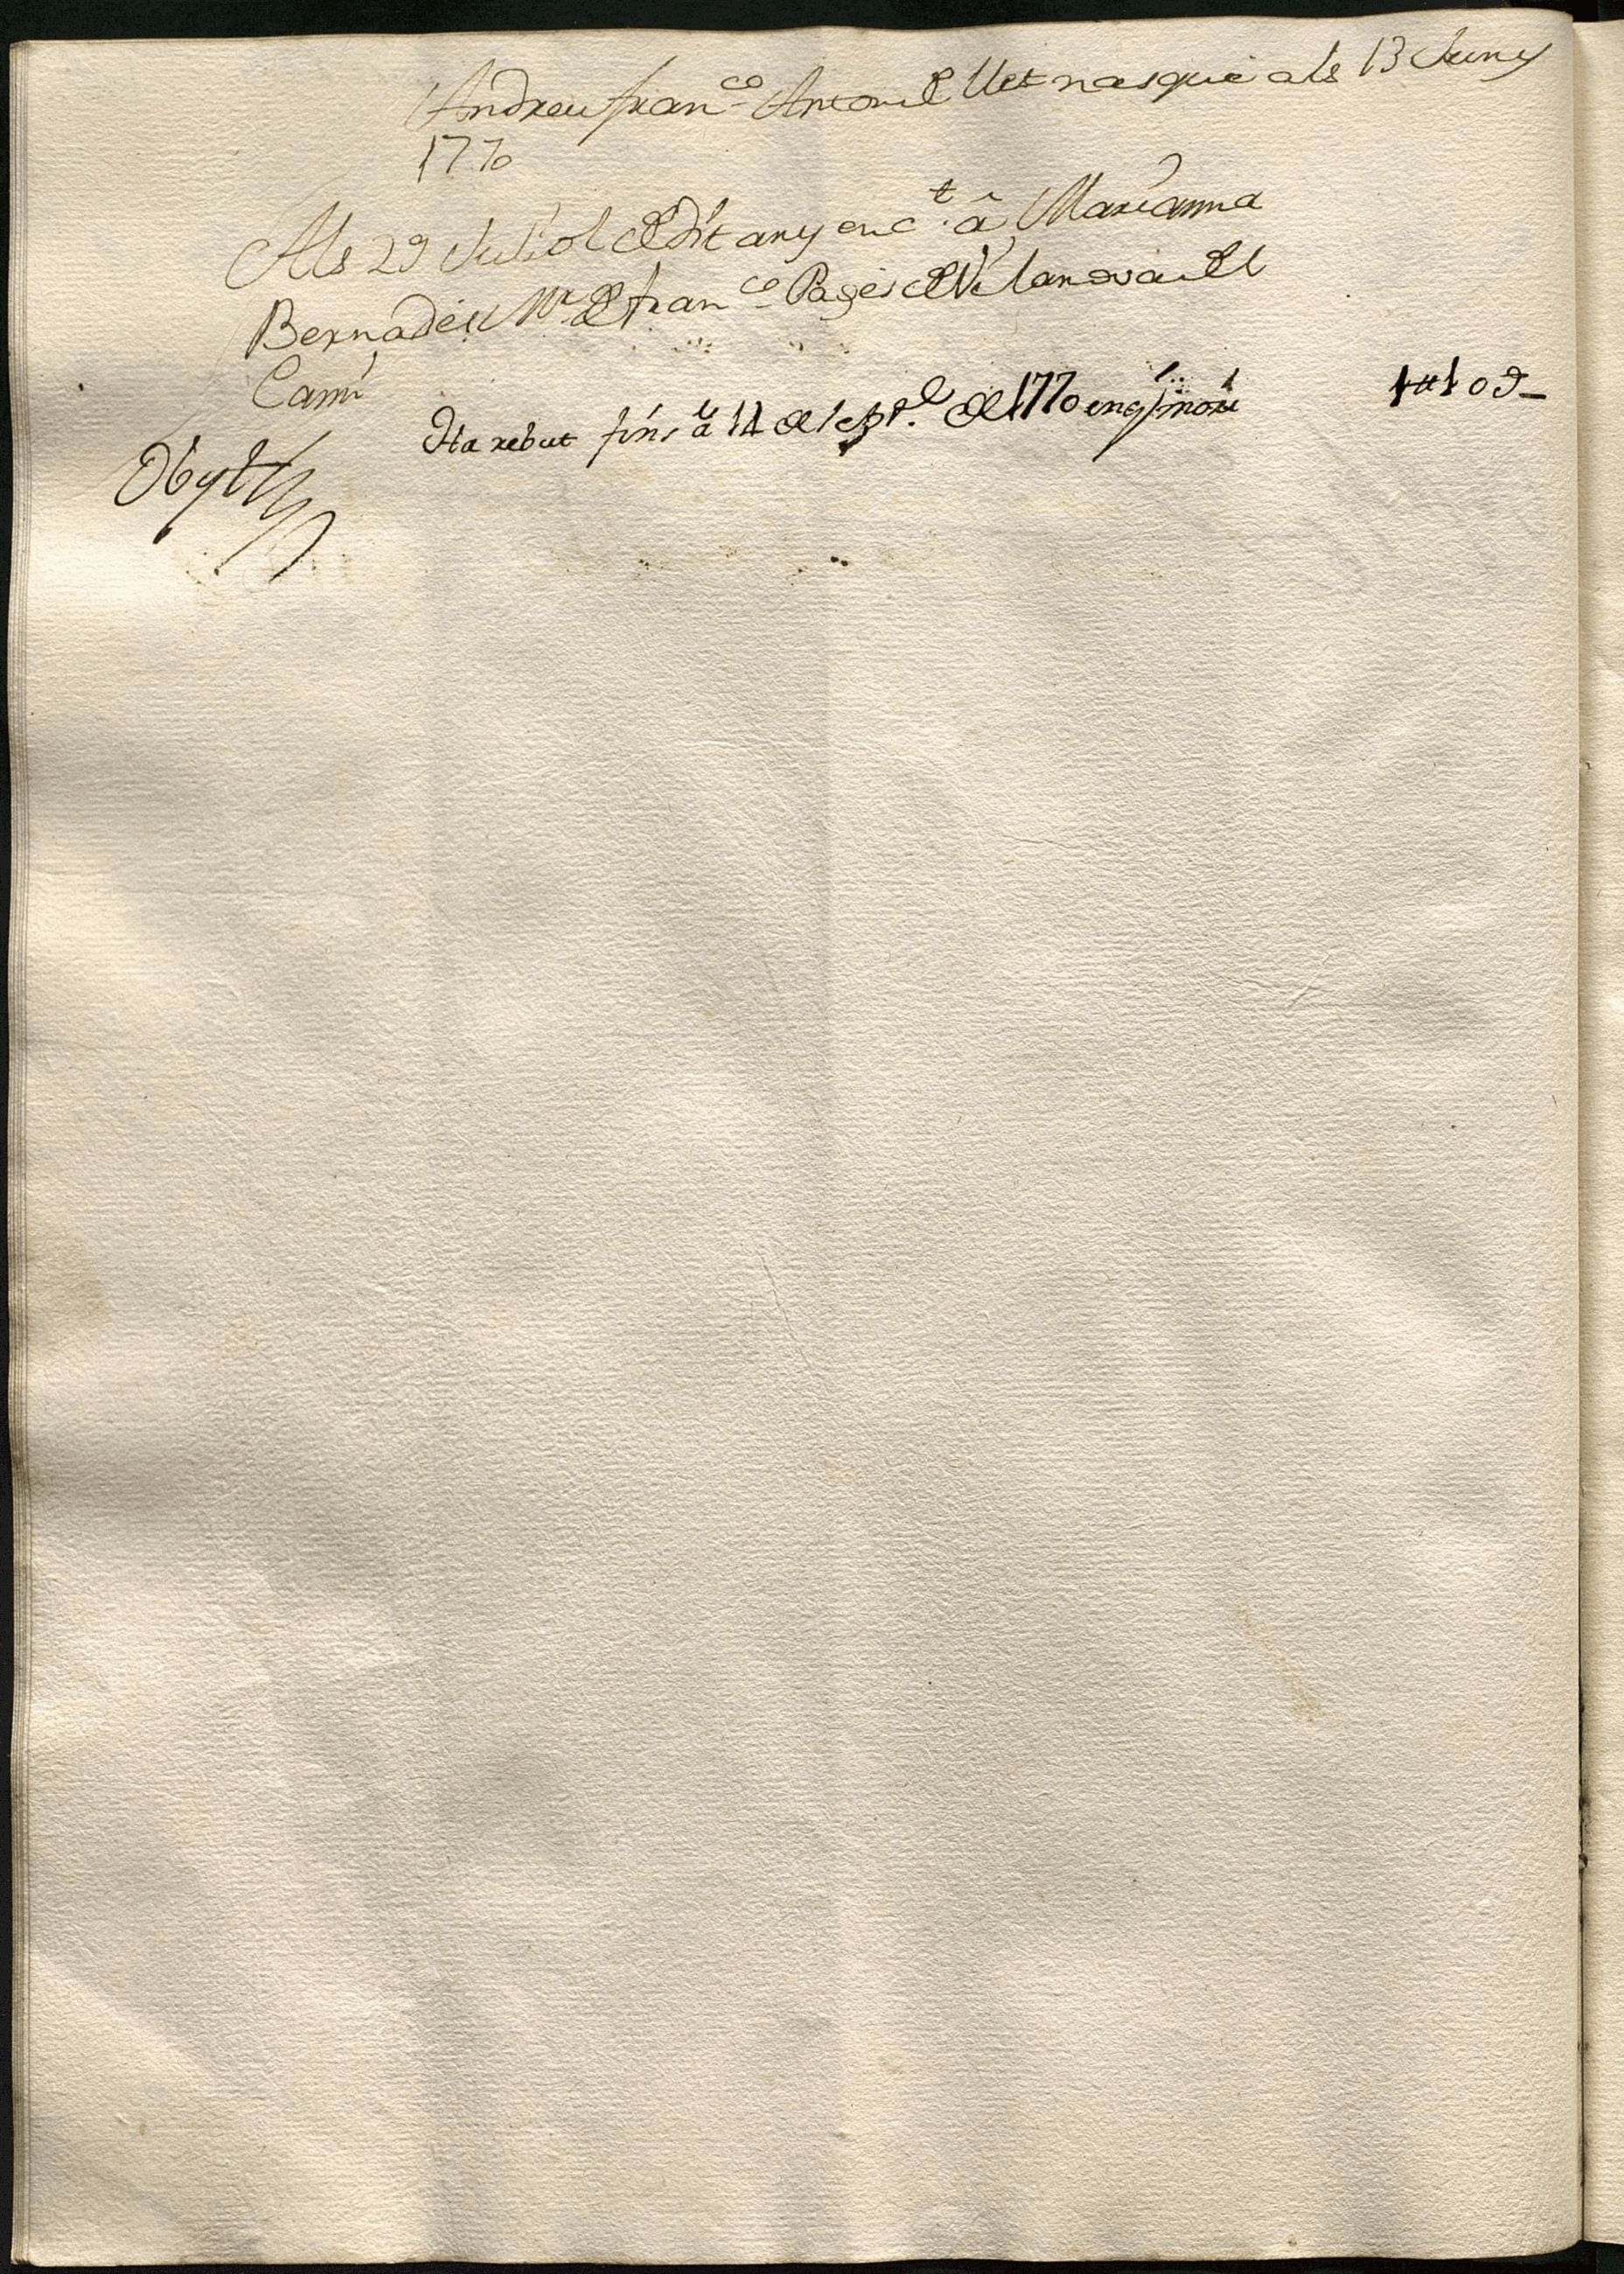 Andreu Fran.co Antoni de llet nasqué als 13 Juny
1770
Als 29 Juliol de dit any enc.t â Marianna
Bernades Mr de Fran.co Pages de Vilanova del
Camí
Ha rebut fins â 14 de sept.e de 1770 en q morí
1 ₶ 10 δ _
Obyt